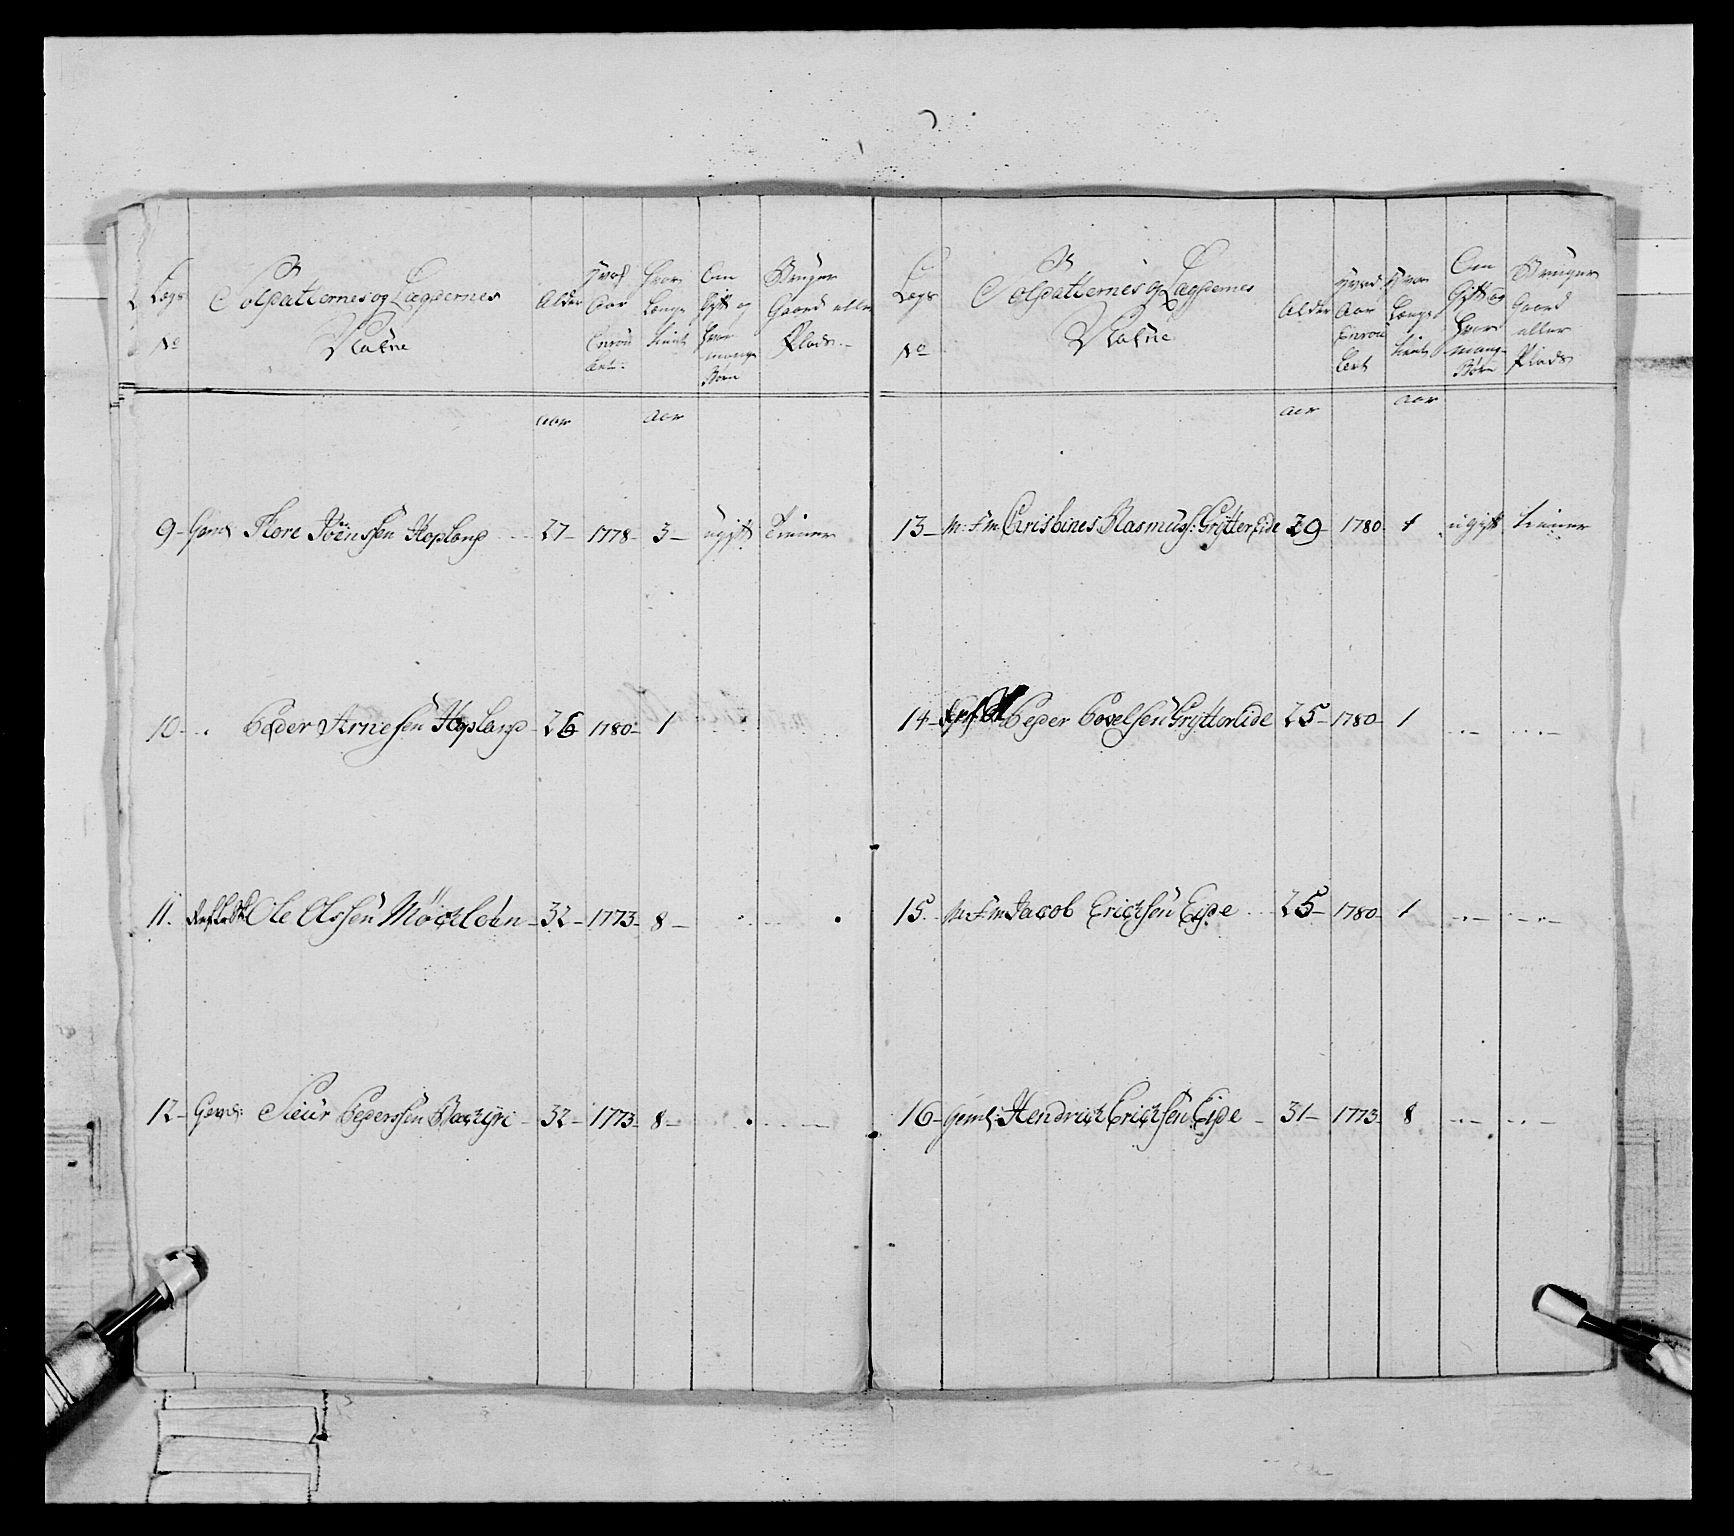 Legs No
Soldatternes og Lægdernes Nafne
Alder
Hvad Aar Enroulert
Hvor Længe tient
Om Gift og hvor mange Børn
Bruger Gaard eller Plads
aar aar
9 Tore Hopland 27 1778 3 ugift tiener
10 Peder Arnesen Hopland 26 1780 1
11 Ole Olssen Möcklebn 32 1773 8
12 Gemd: Siur Pederssen 32 1773 8
Legs No
Soldatternes og Lægdernes Nafne
Alder
Hvad Aar Enroulert
Hvor Længe tient
Om Gift og hvor mange Børn
Bruger Gaard eller Plads
aar aar
13 Rasmus: Gryttereide 29 1780 1 ugift tiener
14 Peder Povelsen Gryttereide 25 1780 1
15 Jacob Ericksen Eide 25 1780 1
16 Geml: Hendrick Ericksen Eide 31 1773 8